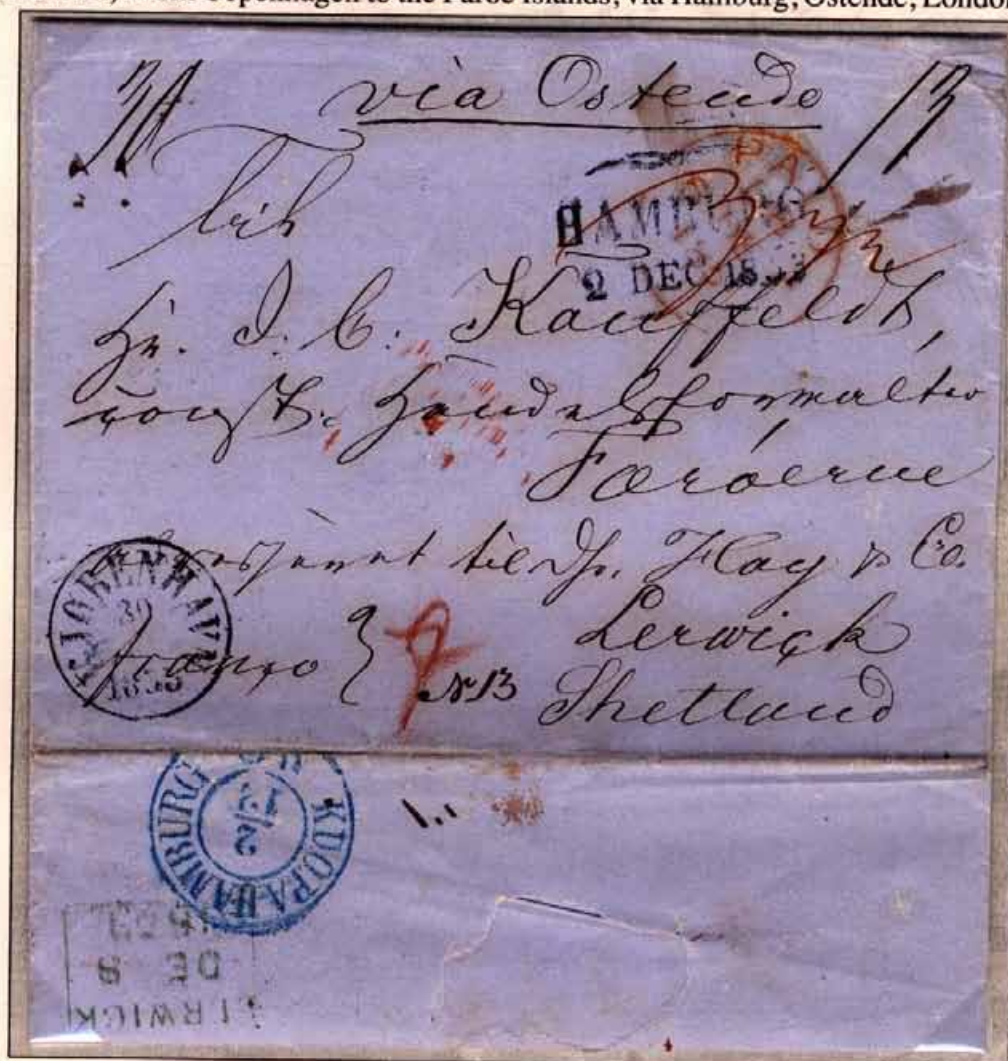 from Copenhagen to the Faroe Islands, via Hamburg, Ostende, London
via Ostende
HAMBURG
2 DEC 18
PA
Hr. J. C. Kauffeldt,
const. Handelsforvalter
Færöerne
til Hr. Hay & Co.
Lerwick
franco
№ 13
Shetland
KJOBENHAVN
30
1853
K.D.O.P.A. HAMBURG
LERWICK
DE 9
1853